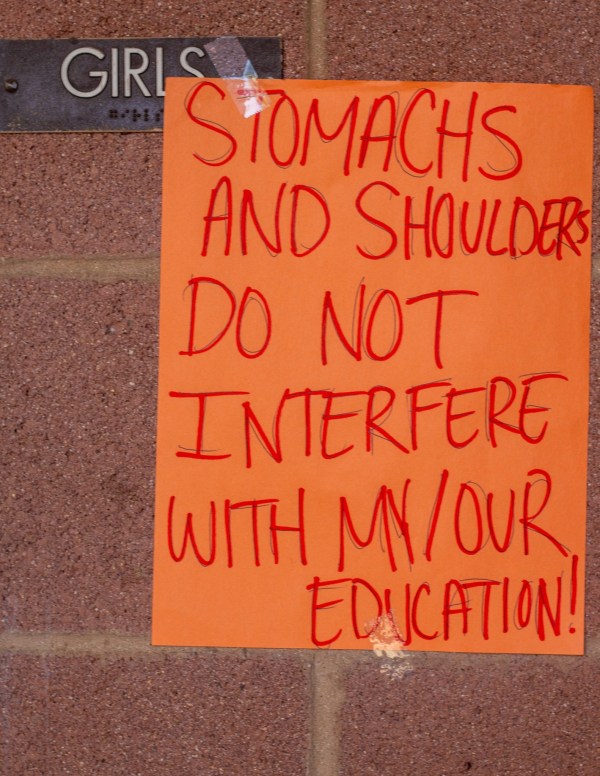 GIRLS
STOMACHS
AND SHOULDERS
DO NOT
INTERFERE
WITH MY/OUR
EDUCATION!